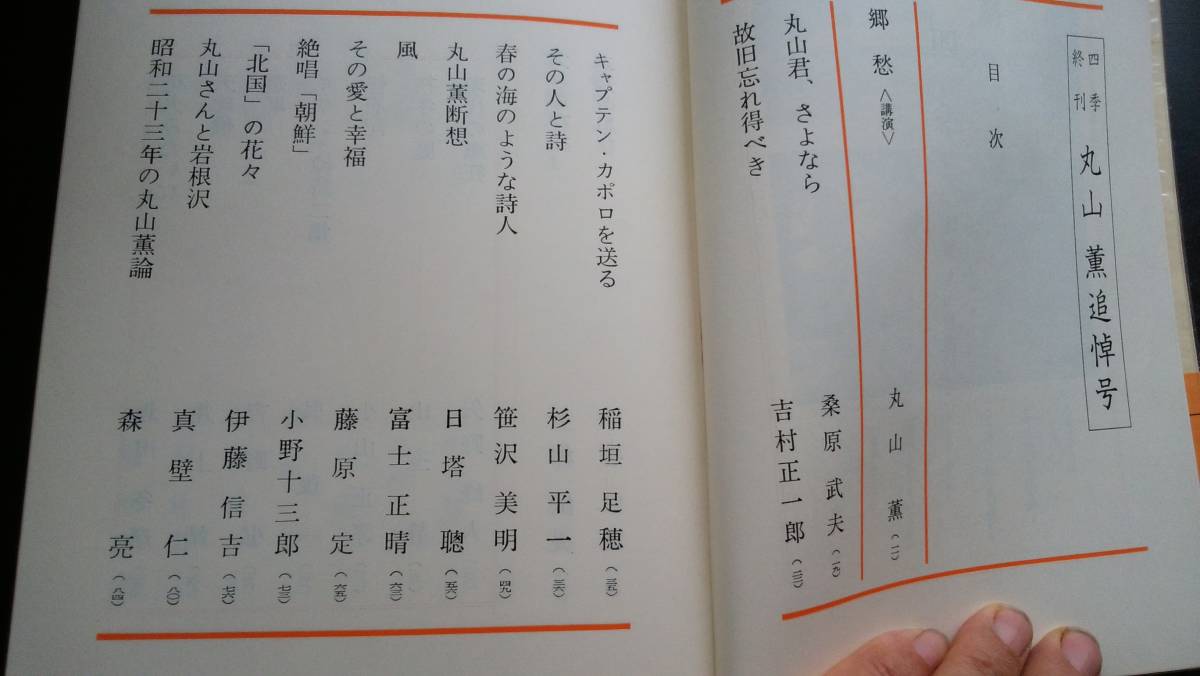 四季終刊 丸山薫追悼号
目次
郷愁<講演> 丸山薫(一)
丸山君、さよなら 桑原武夫(一九)
故旧忘れ得べき 吉村正一郎
キャプテン・カポロを送る 稲垣足穂
その人と詩 杉山平一(三六)
春の海のような詩人 笹沢美明(四九)
丸山薫断想 日塔聰(五六)
風 富士正晴(六〇)
その愛と幸福 藤原定(六五)
絶唱「朝鮮」 小野十三郎
「北国」の花々 伊藤信吉(七六)
丸山さんと岩根沢 真壁仁(八〇)
昭和二十三年の丸山薫論 森亮(八四)